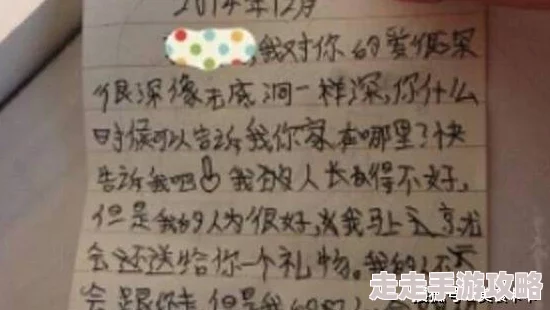 2014年12月
,我对你的爱很深
很深像无底洞一样深,你什么
时候可以告诉我你家在哪里了快
告诉我吧 我的人长得不好,
但是我的人为很好,我马上去京龙
会还送给你一个礼物。我的人不
会跟你走 但是我的
走走手游攻略